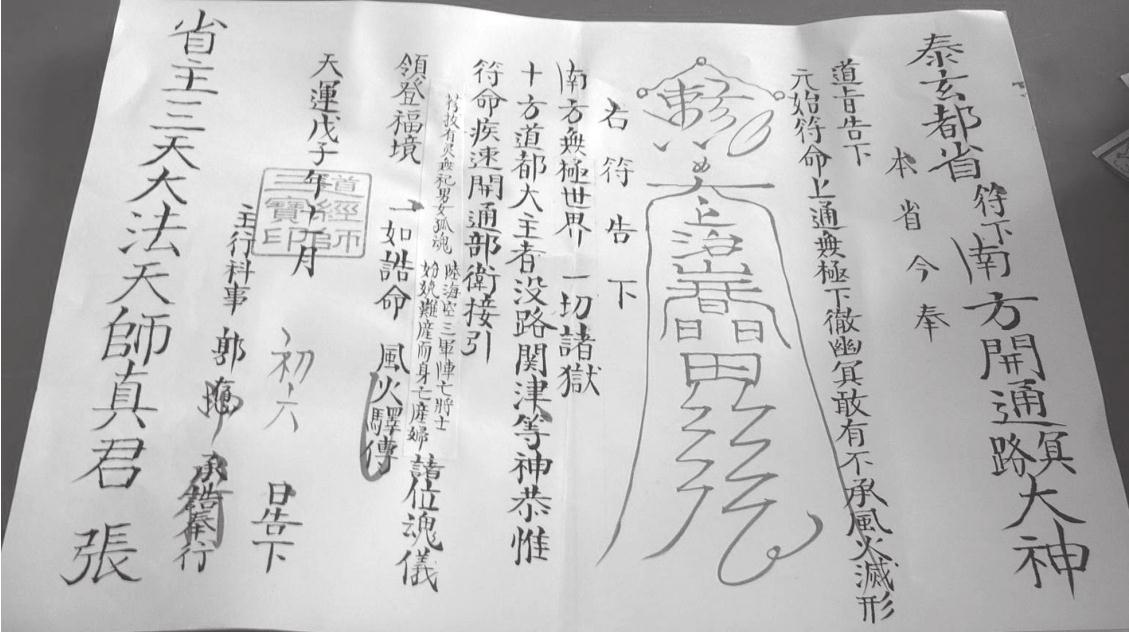 泰玄都省
符下
南方開通冥路大神
本省今奉
道旨告下
元始符命上通無極下徹幽冥敢有不承風火滅形
右符告下
南方無極世界一切諸獄
十方道都大主者没路関津等神恭惟
符命疾速開通部衛接引
有災無祀男女孤魂
陸海空三軍陣亡將士
難産而身亡産婦
諸位魂儀
領登福境
一如誥命
風火驛傳
天運戊子年
月
初六
日告下
道經師
三寶印
主行科事
郭
承誥奉行
省主三天大法天師真君
張